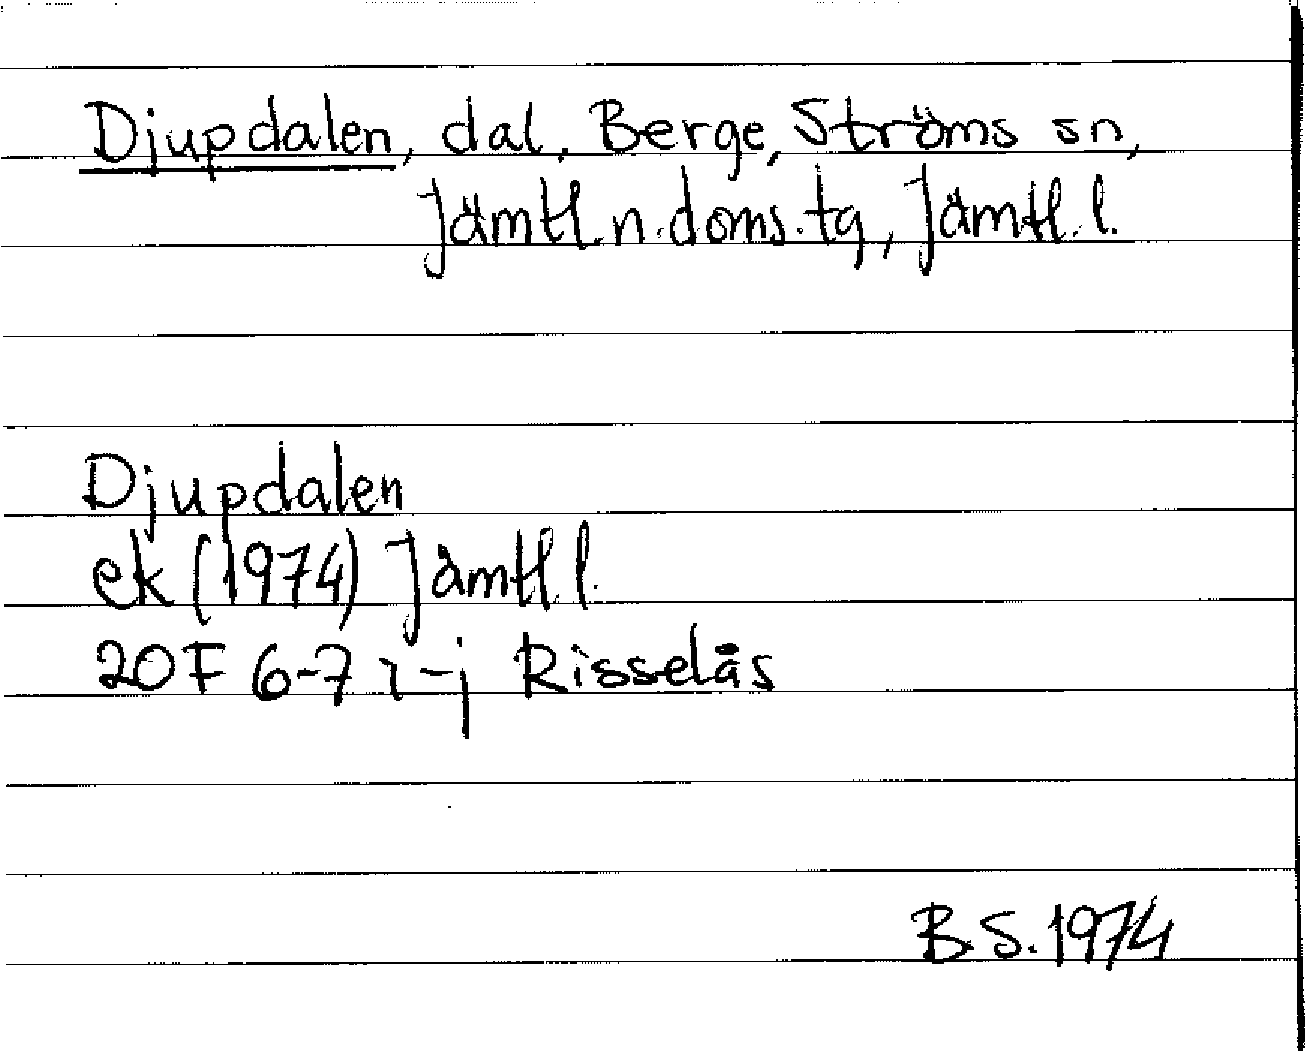 Djupdalen, dal, Berge, Ströms sn,
Jämtl. n. doms. tg, Jämtl. l.
Djupdalen
ek (1974) Jämtl. l.
20F 6-7 i-j Risselås
B.S. 1974